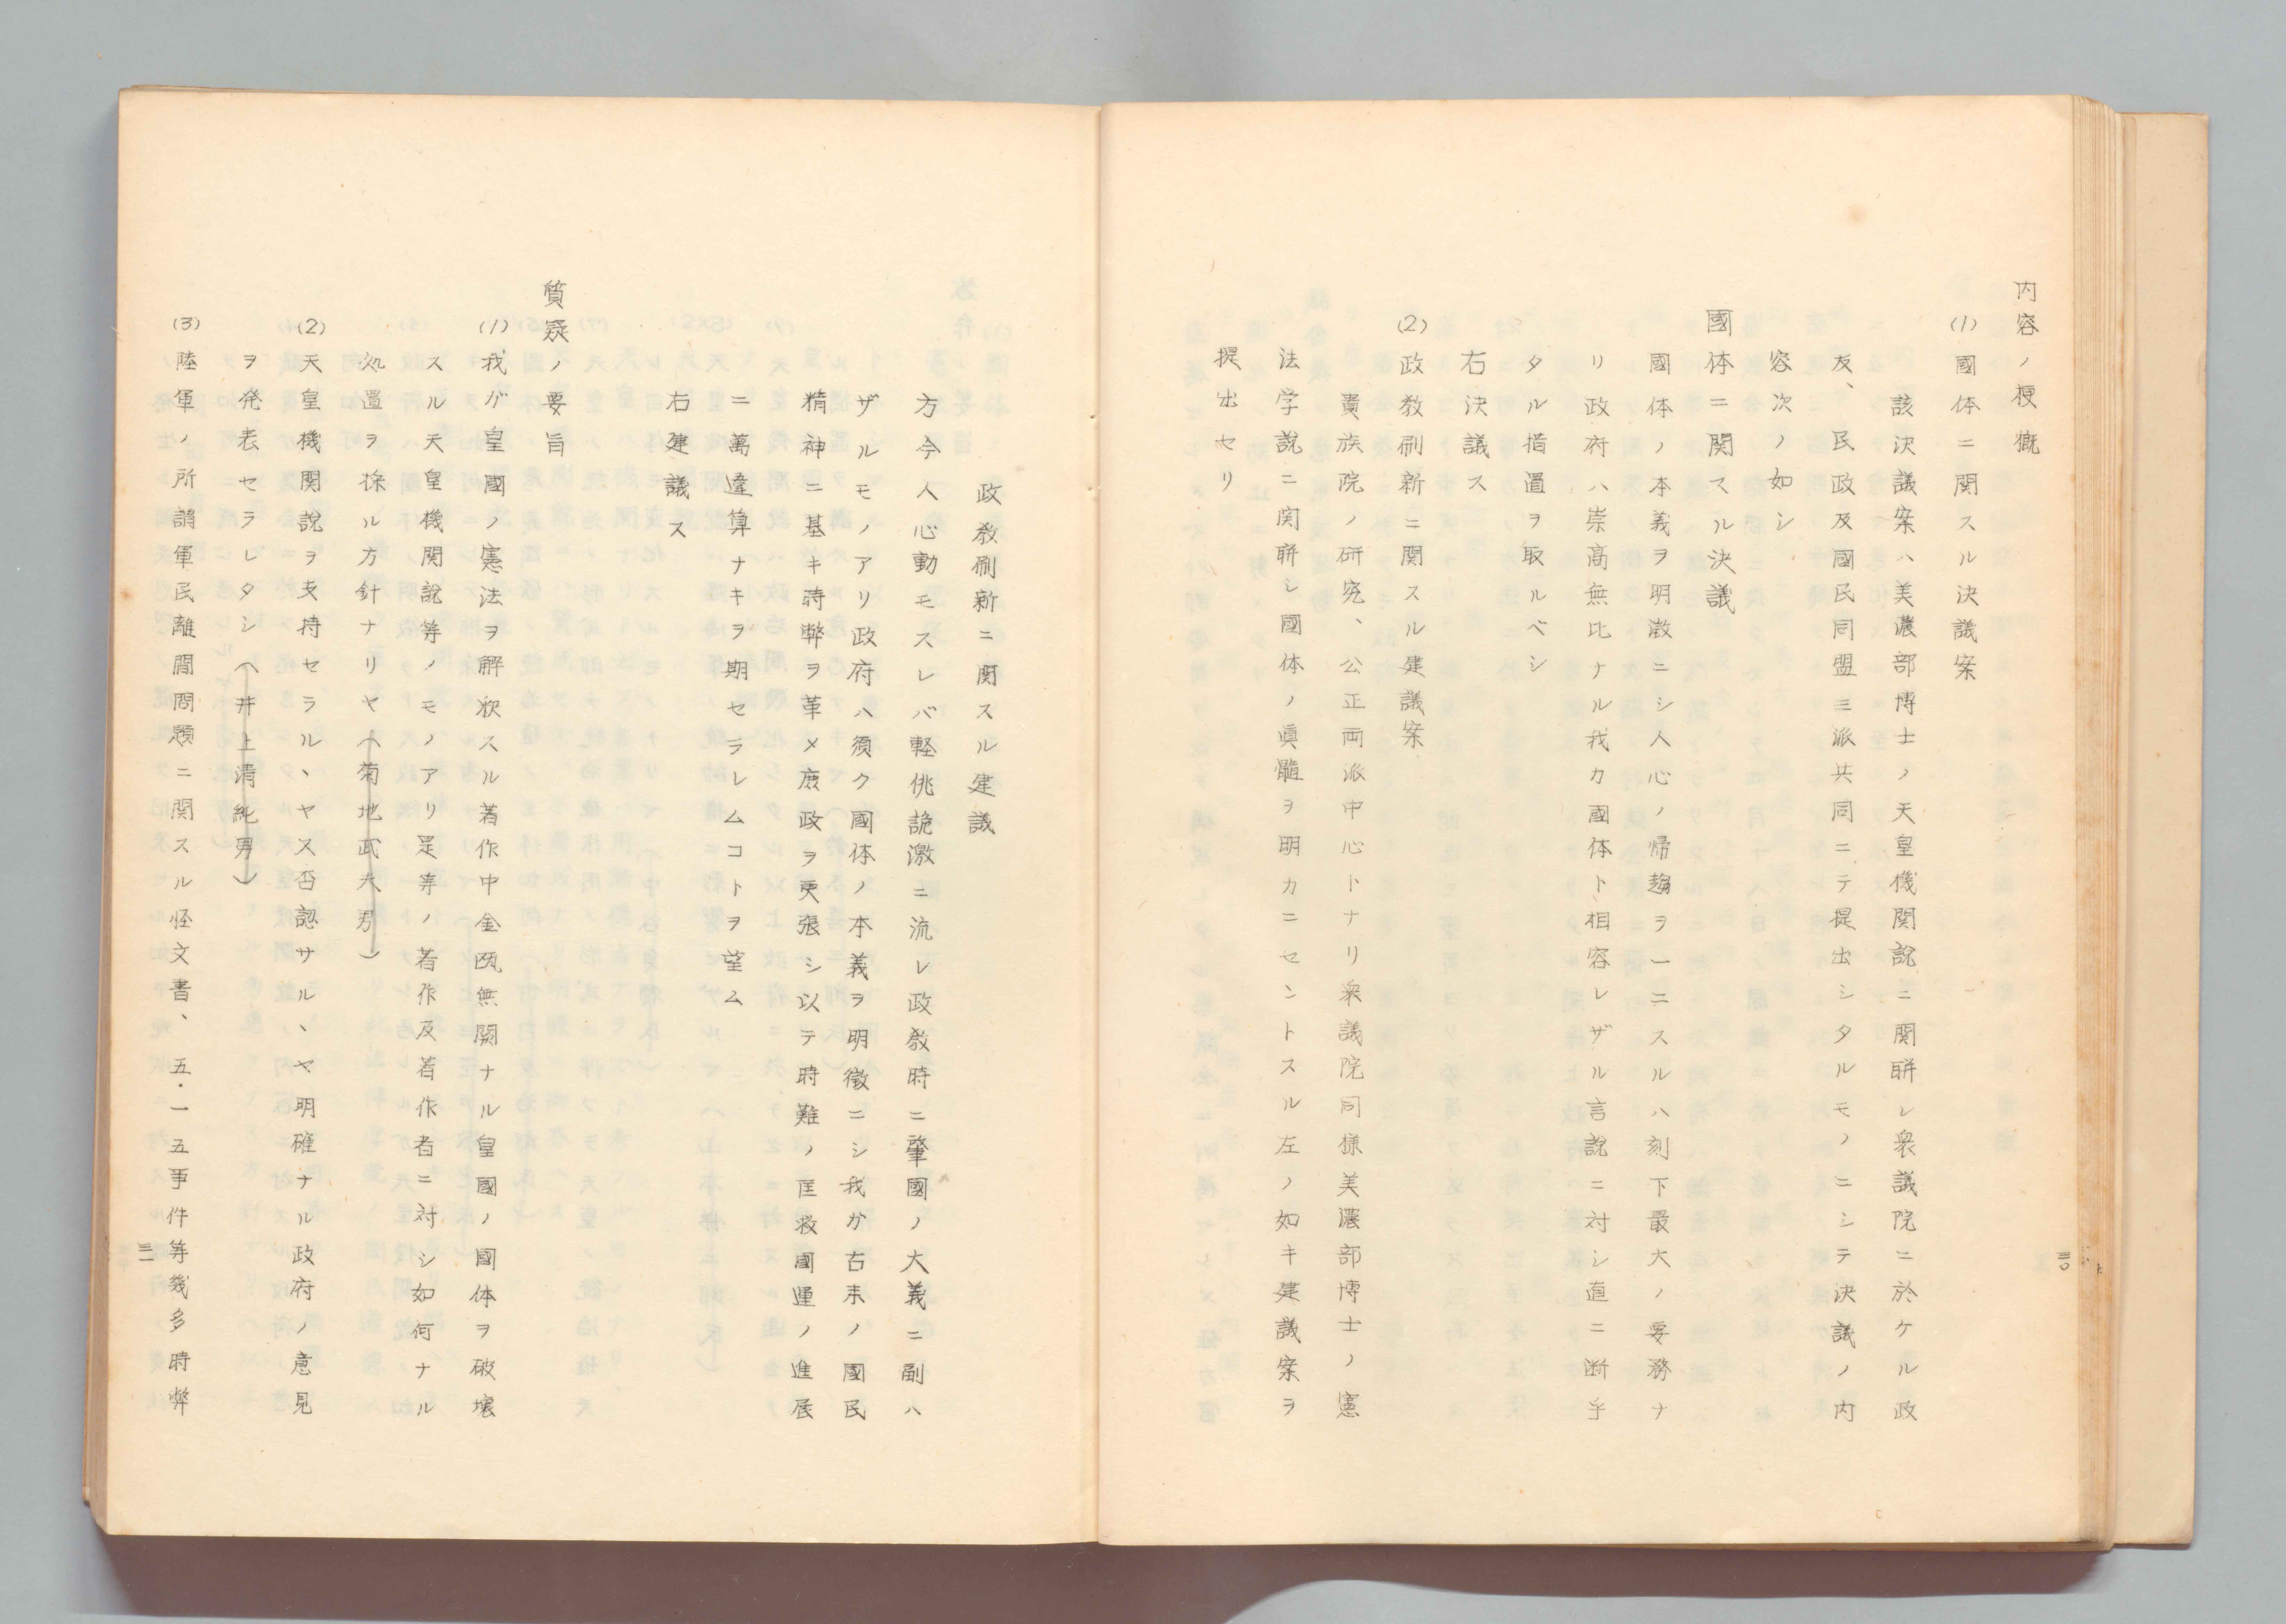 内容ノ梗概
(1)國体ニ関スル決議案
該決議案ハ美濃部博士ノ天皇機関説ニ関聯シ衆議院ニ於ケル政
友、民政及國民同盟三派共同ニテ提出シタルモノニシテ決議ノ内
容次ノ如シ
國体ニ関スル決議
國体ノ本義ヲ明澂ニシ人心ノ帰趨ヲ一ニスルハ刻下最大ノ要務ナ
リ政府ハ崇高無比ナル我カ國体ト相容レザル言説ニ対シ直ニ断乎
タル措置ヲ取ルベシ
右決議ス
(2)政教刷新ニ関スル建議案
貴族院ノ研究、公正両派中心トナリ衆議院同様美濃部博士ノ憲
法学説ニ関聯シ國体ノ眞髄ヲ明カニセントスル左ノ如キ建議案ヲ
提出セリ
三〇
政教刷新ニ関スル建議
方今人心動モスレバ軽佻詭激ニ流レ政教時ニ肇國ノ大義ニ副ハ
ザルモノアリ政府ハ須ク國体ノ本義ヲ明徴ニシ我が古来ノ國民
精神ニ基キ時弊ヲ革メ庶政ヲ更張シ以テ時難ノ匡救國運ノ進展
ニ萬違算ナキヲ期セラレムコトヲ望ム
右建議ス
質疑ノ要旨
(1)我が皇國ノ憲法ヲ解釈スル著作中金甌無闕ナル皇國ノ國体ヲ破壊
スル天皇機関説等ノモノアリ是等ノ著作及著作者ニ対シ如何ナル
処置ヲ採ル方針ナリヤ(菊地武夫男)
(2)天皇機関説ヲ支持セラルヽヤス否認サルヽヤ明確ナル政府ノ意見
ヲ発表セラレタシ(井上清純男)
(3)陸軍ノ所謂軍民離間問題ニ関スル怪文書、五・一五事件等幾多時弊
三一